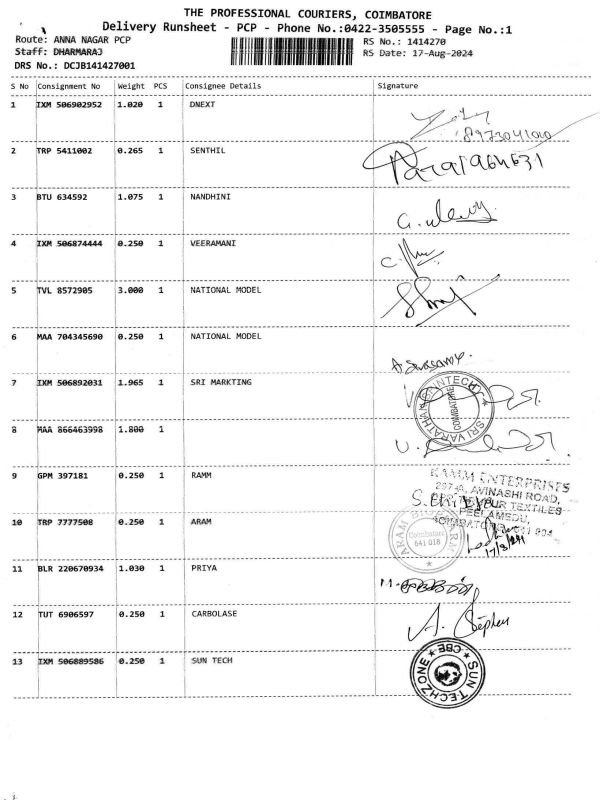 THE PROFESSIONAL COURIERS, COIMBATORE
Delivery Runsheet - PCP - Phone No.:0422-3505555 - Page No.:1
Route: ANNA NAGAR PCP
RS No.: 1414270
Staff: DHARMARAJ
RS Date: 17-Aug-2024
DRS No.: DCJB141427001
S No Consignment No Weight PCS Consignee Details Signature
1 IXM 506902952 1.020 1 DNEXT
8973041000
2 TRP 5411002 0.265 1 SENTHIL
3 BTU 634592 1.075 1 NANDHINI
4 IXM 506874444 0.250 1 VEERAMANI
5 TVL 8572905 3.000 1 NATIONAL MODEL
6 MAA 704345690 0.250 1 NATIONAL MODEL
7 IXM 506892031 1.965 1 SRI MARKTING
SRIVARATHAN PRINTECH
COIMBATORE
8 MAA 866463998 1.800 1
9 GPM 397181 0.250 1 RAMM
RAMM ENTERPRISES
297-A, AVINASHI ROAD,
TEXTILES
PEELAMEDU,
COIMBATORE - 641 004
10 TRP 7777508 0.250 1 ARAM
ARAM
Coimbatore
641 018
17/8/24
11 BLR 220670934 1.030 1 PRIYA
12 TUT 6906597 0.250 1 CARBOLASE
A. Stephen
13 IXM 506889586 0.250 1 SUN TECH
SUN TECHZONE
CBE